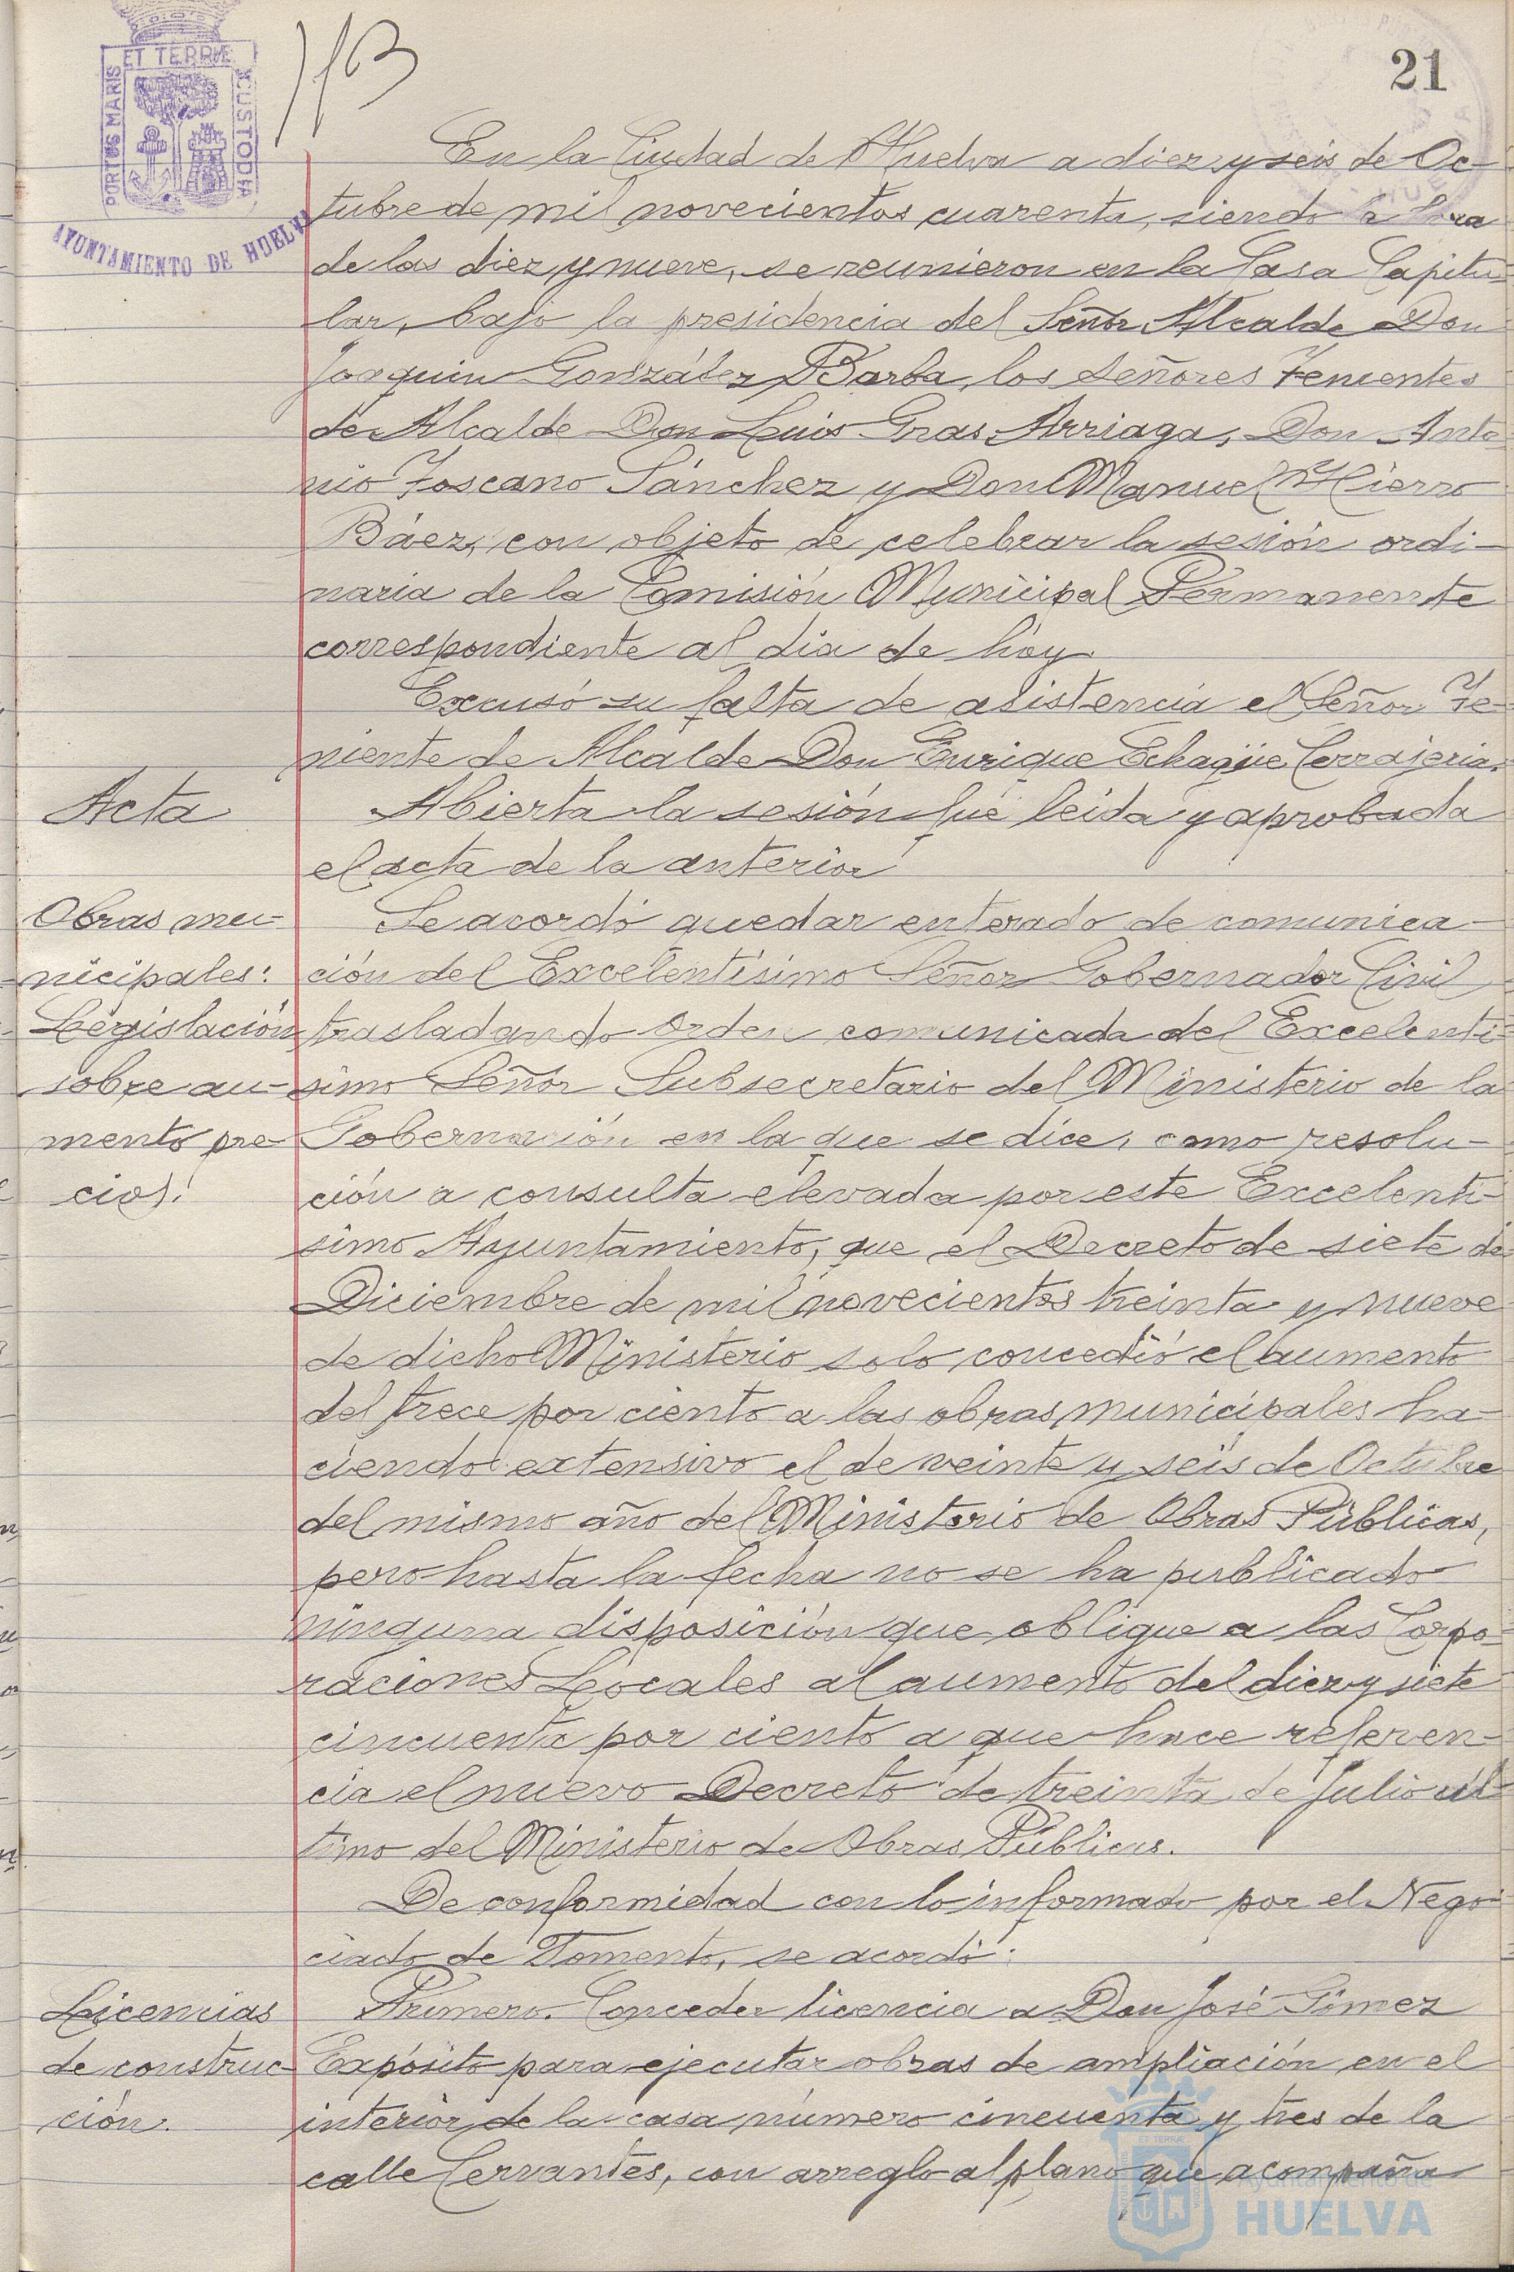 21
PORTUS MARIS ET TERRÆ CUSTODIA
AYUNTAMIENTO DE HUELVA
En la Ciudad de Huelva a diez y seis de Oc-
tubre de mil novecientos cuarenta, siendo la hora
de las diez y nueve, se reunieron en la Casa Capitu-
lar, bajo la presidencia del Señor Alcalde Don
Joaquin González Barba, los Señores Tenientes
de Alcalde Don Luis Gras Arriaga, Don Anto-
nio Toscano Sánchez y Don Manuel Hierro
Báez, con objeto de celebrar la sesión ordi-
naria de la Comisión Municipal Permanente
correspondiente al dia de hoy.
Excusó su falta de asistencia el Señor Te-
niente de Alcalde Don Enrique Echagüe Cerrajeria.
Acta
Abierta la sesión fué leida y aprobada
el acta de la anterior
Obras mu-
nicipales:
Legislación
sobre au-
mento pre-
cios.
Se acordó quedar enterado de comunica-
ción del Excelentísimo Señor Gobernador Civil
trasladando orden comunicada del Excelentí-
simo Señor Subsecretario del Ministerio de la
Gobernación en la que se dice, como resolu-
ción a consulta elevada por este Excelentí-
simo Ayuntamiento, que el Decreto de siete de
Diciembre de mil novecientos treinta y nueve
de dicho Ministerio solo concedió el aumento
del trece por ciento a las obras municipales ha-
ciendo extensivo el de veinte y seis de Octubre
del mismo año del Ministerio de Obras Públicas,
pero hasta la fecha no se ha publicado
ninguna disposición que obligue a las Corpo-
raciones Locales al aumento del diez y siete
cincuenta por ciento a que hace referen-
cia el nuevo Decreto de treinta de Julio úl-
timo del Ministerio de Obras Públicas.
De conformidad con lo informado por el Nego-
ciado de Fomento, se acordó:
Licencias
de construc-
ción.
Primero. Conceder licencia a Don José Gómez
Expósito para ejecutar obras de ampliación en el
interior de la casa número cincuenta y tres de la
calle Cervantes, con arreglo al plano que acompaña
Ayuntamiento de
HUELVA